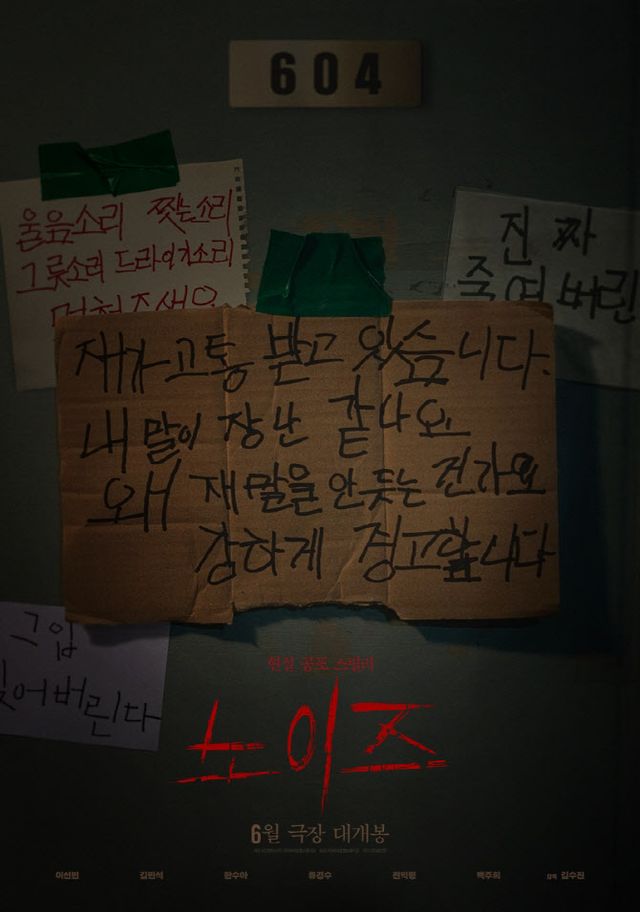 604
울음소리 찢는소리
그릇소리 드라이기소리
진짜
죽여버린
재가 고통 받고 있습니다.
내 말이 장난 같나요
왜 재 말을 안듣는 건가요
강하게 경고합니다
그입
찢어버린다
현실 공포 스릴러
노이즈
6월 극장 대개봉
이선빈 김민석 한수아 류경수 전익령 백주희 감독 김수진